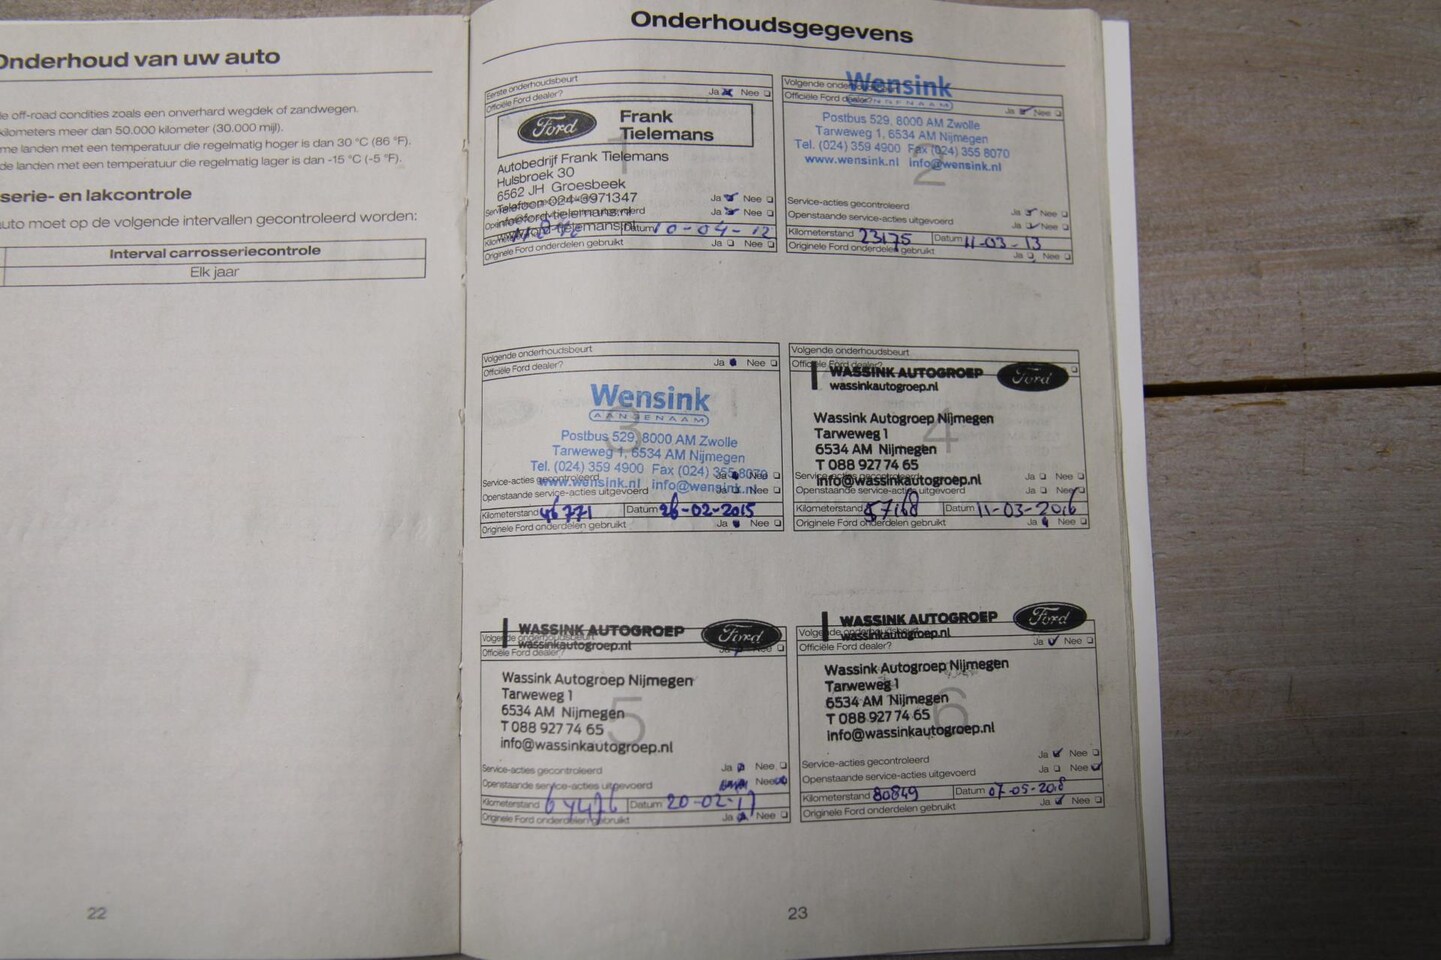 Onderhoud van uw auto
le off-road condities zoals een onverhard wegdek of zandwegen.
kilometers meer dan 50.000 kilometer (30.000 mijl).
me landen met een temperatuur die regelmatig hoger is dan 30 °C (86 °F).
de landen met een temperatuur die regelmatig lager is dan -15 °C (-5 °F).
serie- en lakcontrole
auto moet op de volgende intervallen gecontroleerd worden:
Interval carrosseriecontrole
Elk jaar
22
Onderhoudsgegevens
Eerste onderhoudsbeurt
Officiële Ford dealer? Ja Nee
Ford Frank Tielemans
Autobedrijf Frank Tielemans
Hulsbroek 30
6562 JH Groesbeek
Telefoon 024-3971347
Ja Nee
info@ford-tielemans.nl
Ja Nee
Datum 10-04-12
Originele Ford onderdelen gebruikt Ja Nee
Volgende
Wensink
Officiële Ford dealer? Ja Nee
Postbus 529, 8000 AM Zwolle
Tarweweg 1, 6534 AM Nijmegen
Tel. (024) 359 4900 Fax (024) 355 8070
www.wensink.nl info@wensink.nl
2
Service-acties gecontroleerd Ja Nee
Openstaande service-acties uitgevoerd Ja Nee
Kilometerstand 23175 Datum 11-03-13
Originele Ford onderdelen gebruikt Ja Nee
Volgende onderhoudsbeurt
Officiële Ford dealer? Ja Nee
Wensink
AANGENAAM
3
Postbus 529, 8000 AM Zwolle
Tarweweg 1, 6534 AM Nijmegen
Tel. (024) 359 4900 Fax (024) 355 8070
Service-acties gecontroleerd Ja Nee
www.wensink.nl info@wensink.nl
Openstaande service-acties uitgevoerd Ja Nee
Kilometerstand 46771 Datum 26-02-2015
Originele Ford onderdelen gebruikt Ja Nee
Volgende onderhoudsbeurt
Officiële Ford dealer?
WASSINK AUTOGROEP Ford
wassinkautogroep.nl
Wassink Autogroep Nijmegen
Tarweweg 1
4
6534 AM Nijmegen
T 088 927 74 65
Service-acties gecontroleerd Ja Nee
info@wassinkautogroep.nl
Openstaande service-acties uitgevoerd Ja Nee
Kilometerstand 57168 Datum 11-03-2016
Originele Ford onderdelen gebruikt Ja Nee
WASSINK AUTOGROEP Ford
Volgende onderhoudsbeurt
wassinkautogroep.nl
Officiële Ford dealer? Ja Nee
Wassink Autogroep Nijmegen
Tarweweg 1
6534 AM Nijmegen
5
T 088 927 74 65
info@wassinkautogroep.nl
Service-acties gecontroleerd Ja Nee
Openstaande service-acties uitgevoerd Nee
Kilometerstand 64476 Datum 20-02-17
Originele Ford onderdelen gebruikt Ja Nee
WASSINK AUTOGROEP Ford
Volgende onderhoudsbeurt
wassinkautogroep.nl
Officiële Ford dealer? Ja Nee
Wassink Autogroep Nijmegen
Tarweweg 1
6534 AM Nijmegen
6
T 088 927 74 65
info@wassinkautogroep.nl
Service-acties gecontroleerd Ja Nee
Openstaande service-acties uitgevoerd Ja Nee
Kilometerstand 80849 Datum 07-05-2018
Originele Ford onderdelen gebruikt Ja Nee
23